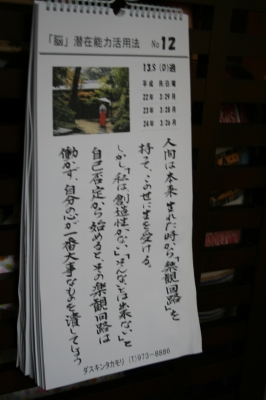 「脳」潜在能力活用法 No 12
13.5 (D)週
平成 月日曜
22年 3・29月
23年 3・28月
24年 3・26月
人間は本来生まれた時から「楽観回路」を
持って、この世に生を受ける。
しかし「私は創造性がない」「そんなことは出来ない」と
自己否定から始めると、その楽観回路は
働かず、自分の心が一番大事なものを潰してしまう
ダスキンタカモリ (T)973-8866